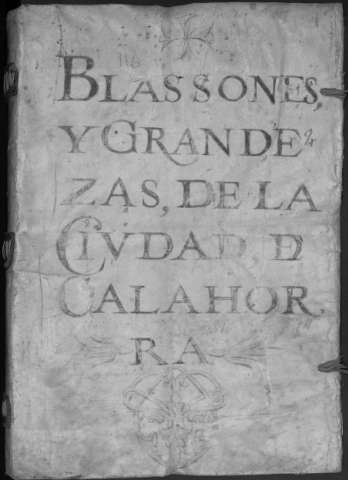 BLASSONES,
Y GRANDE
ZAS, DE LA
CIVDAD, D
CALAHOR
RA